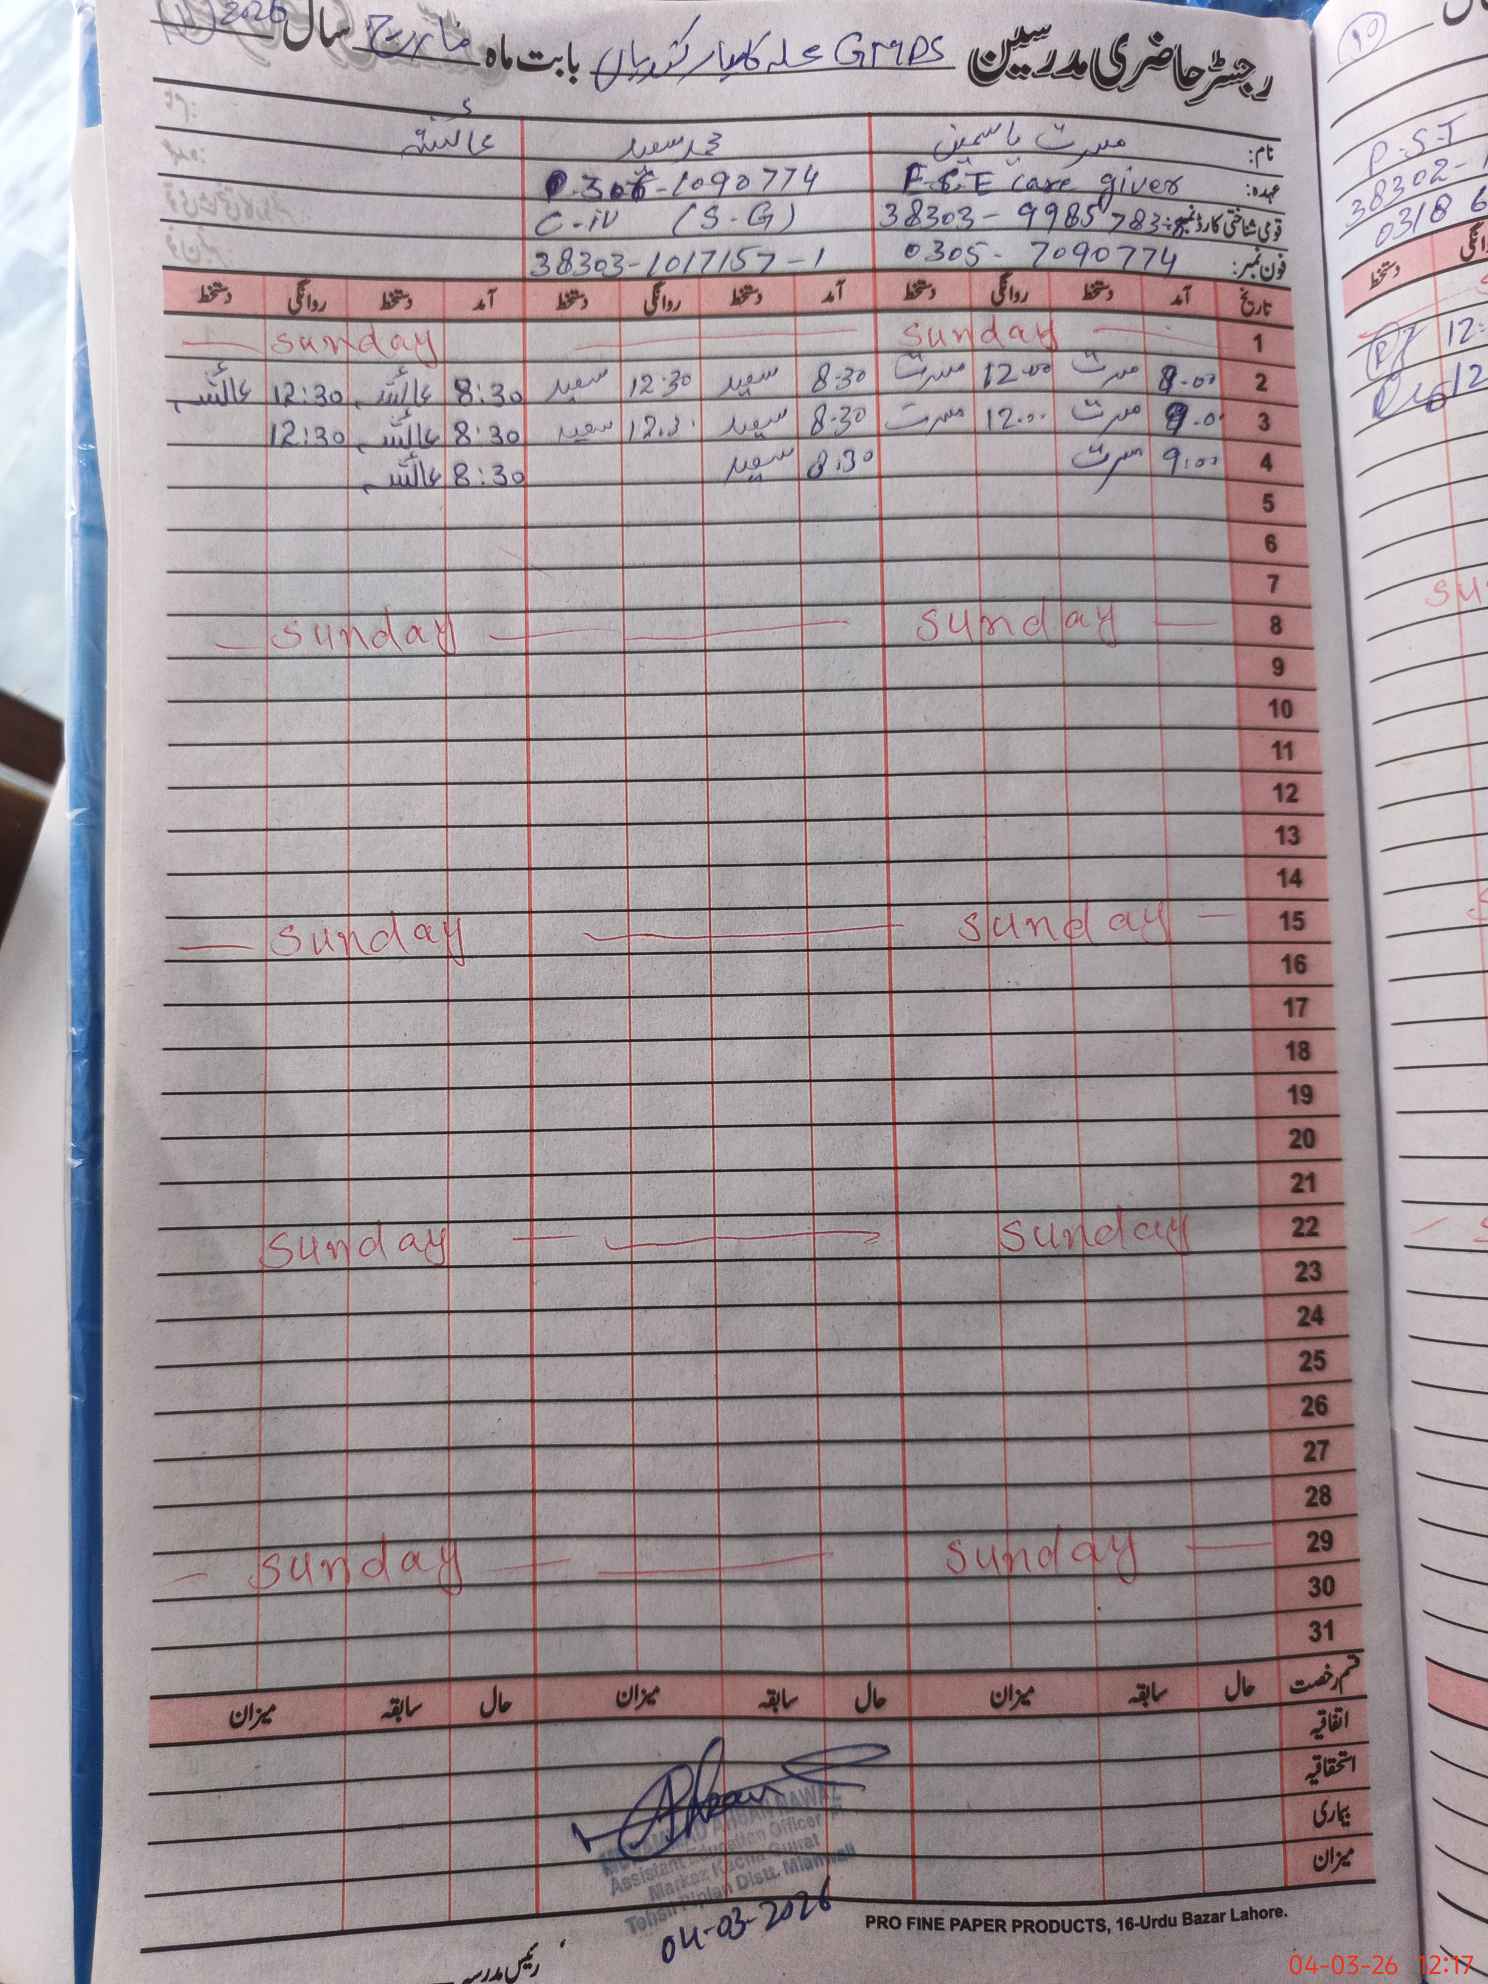 رجسٹر حاضری مدرسین GMPS محلہ بابت ماہ مارچ سال 2026
نام: مسرت یاسمین محمد سعید عائشہ
عہدہ: E.C.E care giver 1090774
قومی شناختی کارڈ نمبر: 38303-9985783-8 C-iv (S-G)
فون نمبر: 0305-7090774 38303-1017157-1
تاریخ آمد دستخط روانگی دستخط آمد دستخط روانگی دستخط آمد دستخط روانگی دستخط
1 Sunday Sunday
2 8.00 مسرت 12.00 مسرت 8.30 سعید 12:30 سعید 8:30 عائشہ 12:30 عائشہ
3 9.00 مسرت 12.00 مسرت 8.30 سعید 12.30 سعید 8:30 عائشہ 12:30
4 9:00 مسرت 8:30 سعید 8:30 عائشہ
5
6
7
8 Sunday Sunday
9
10
11
12
13
14
15 Sunday Sunday
16
17
18
19
20
21
22 Sunday Sunday
23
24
25
26
27
28
29 Sunday Sunday
30
31
قسم رخصت حال سابقہ میزان حال سابقہ میزان حال سابقہ میزان
اتفاقیہ
استحقاقیہ
بیماری
میزان
MUHAMMAD AHSAN NAWAZ
Assistant Education Officer
Markaz Kacha Gujrat
Tehsil Piplan Distt. Mianwali
04-03-2026
PRO FINE PAPER PRODUCTS, 16-Urdu Bazar Lahore.
رئیس مدرسہ
10
P.S.T
38302-
0318 6
روانگی دستخط
12:
12
04-03-26 12:17